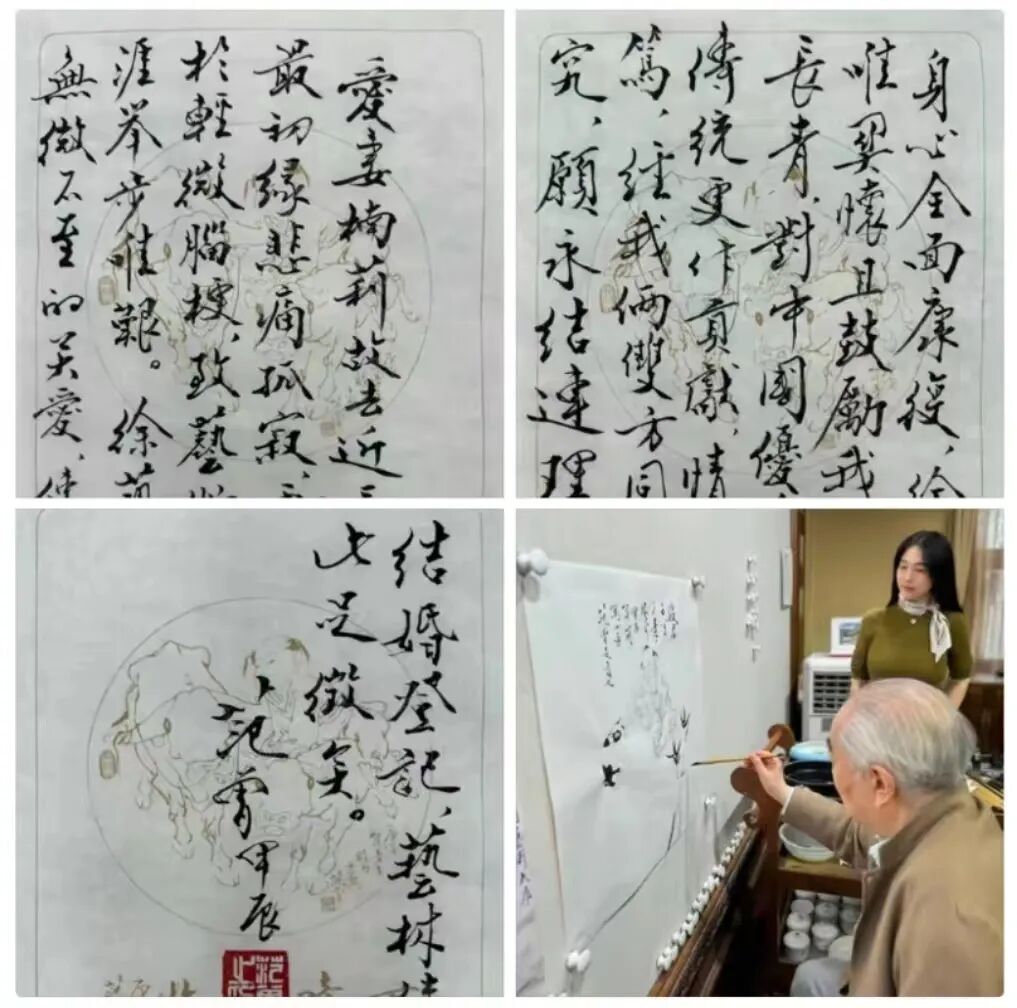 愛妻楠莉故去近
最初緣悲痛孤寂、
於輕微腦梗、致藝
涯举步唯艱。徐
無微不至的关愛、使
身心全面康復、徐
唯懷且鼓勵我
長青、對中國優
傳統更作貢獻、情
篤、經我倆雙方同
究、願永結連理
结婚登記、藝林
此足徵矣。
范曾甲辰